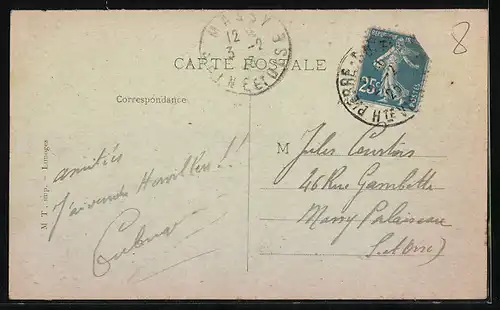 MASSY
12
3 -2
SEINE ET OISE
8
CARTE POSTALE
25c
POSTES
PIERRE
Hte V
Correspondance
M
Jules Courtois
46 Rue Gambetta
Massy Palaiseau
S. et Oise)
amitiés
M T, imp. — Limoges